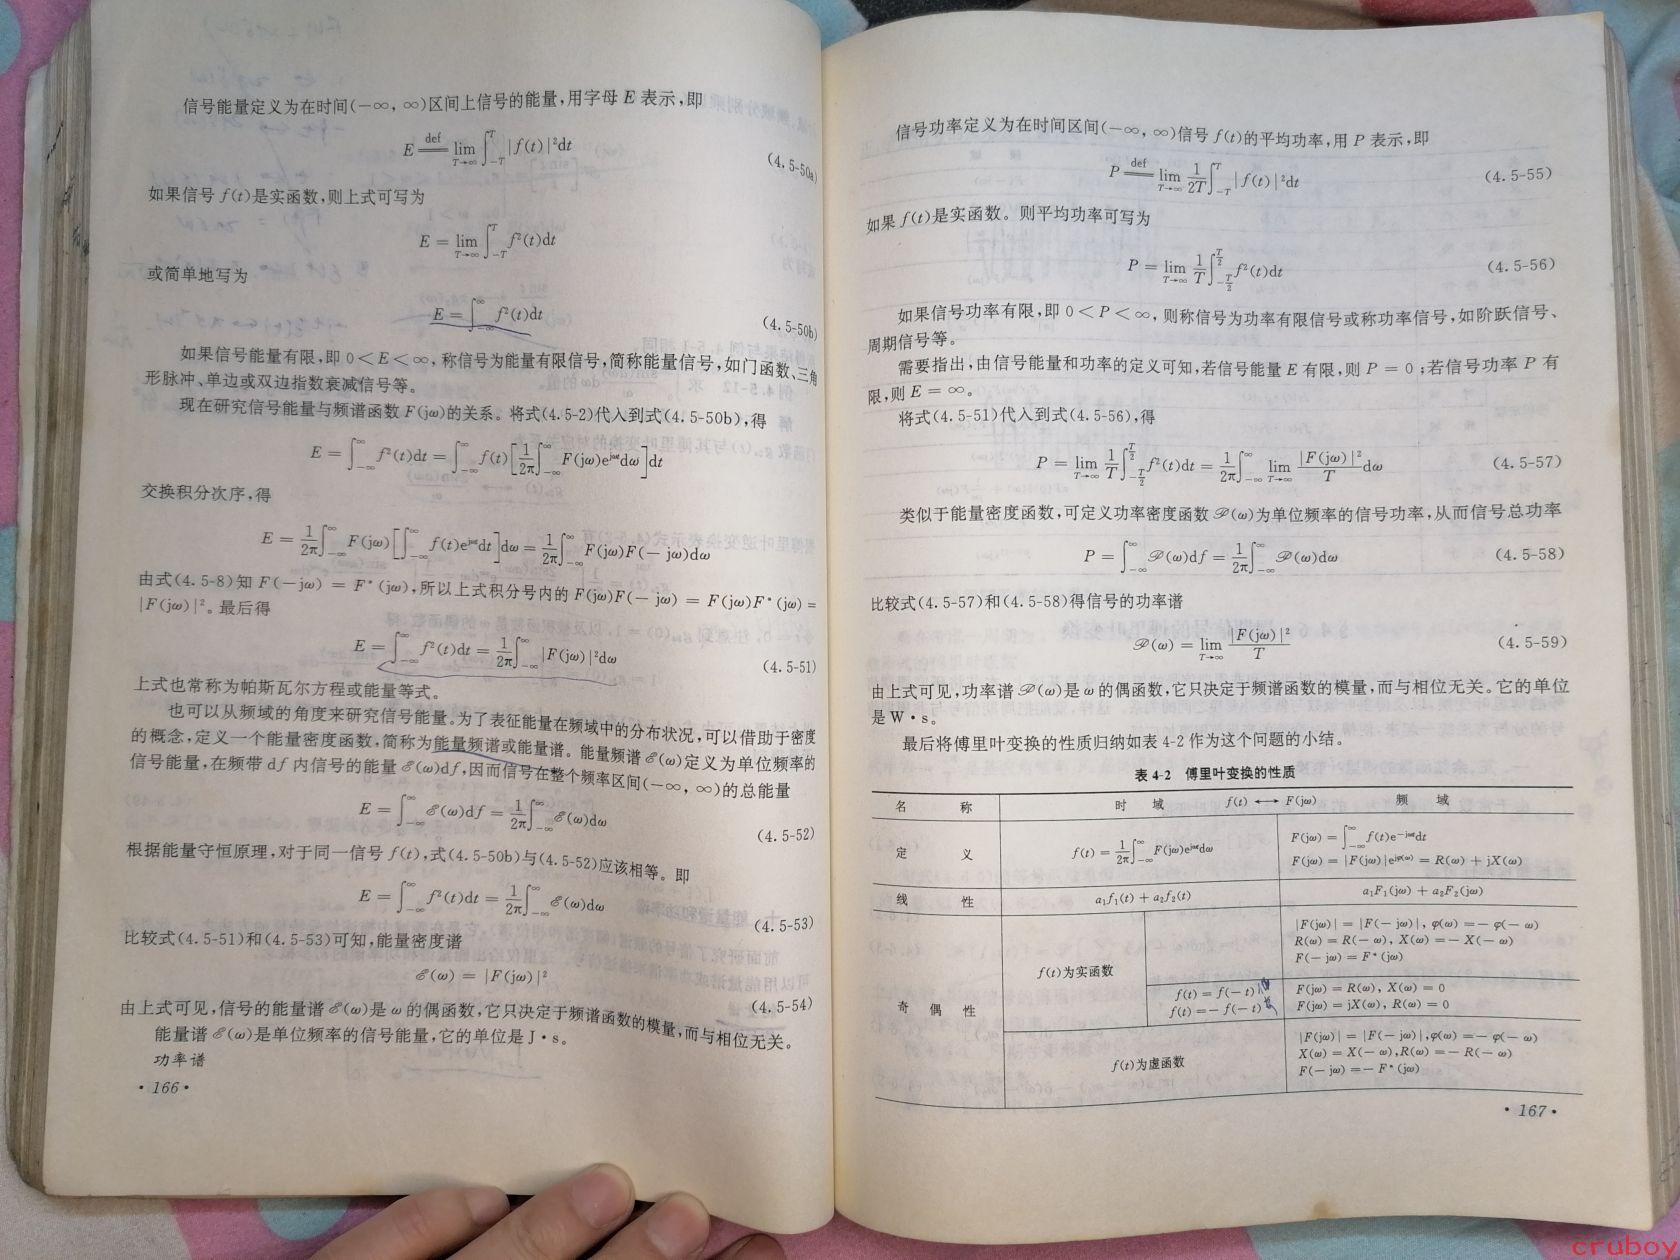 信号能量定义为在时间(−∞, ∞)区间上信号的能量,用字母 E 表示,即
E \overset{def}{=} \lim_{T→∞} ∫_{−T}^{T} |f(t)|²dt (4.5-50a)
如果信号 f(t)是实函数,则上式可写为
E = \lim_{T→∞} ∫_{−T}^{T} f²(t)dt
或简单地写为
E = ∫_{−∞}^{∞} f²(t)dt (4.5-50b)
如果信号能量有限,即 0<E<∞,称信号为能量有限信号,简称能量信号,如门函数、三角
形脉冲、单边或双边指数衰减信号等。
现在研究信号能量与频谱函数 F(jω)的关系。将式(4.5-2)代入到式(4.5-50b),得
E = ∫_{−∞}^{∞} f²(t)dt = ∫_{−∞}^{∞} f(t)[\frac{1}{2π}∫_{−∞}^{∞} F(jω)e^{jωt}dω]dt
交换积分次序,得
E = \frac{1}{2π}∫_{−∞}^{∞} F(jω)[∫_{−∞}^{∞} f(t)e^{jωt}dt]dω = \frac{1}{2π}∫_{−∞}^{∞} F(jω)F(−jω)dω
由式(4.5-8)知 F(−jω) = F*(jω),所以上式积分号内的 F(jω)F(−jω) = F(jω)F*(jω) =
|F(jω)|²。最后得
E = ∫_{−∞}^{∞} f²(t)dt = \frac{1}{2π}∫_{−∞}^{∞} |F(jω)|²dω (4.5-51)
上式也常称为帕斯瓦尔方程或能量等式。
也可以从频域的角度来研究信号能量。为了表征能量在频域中的分布状况,可以借助于密度
的概念,定义一个能量密度函数,简称为能量频谱或能量谱。能量频谱 ℰ(ω)定义为单位频率的
信号能量,在频带 df 内信号的能量 ℰ(ω)df,因而信号在整个频率区间(−∞, ∞)的总能量
E = ∫_{−∞}^{∞} ℰ(ω)df = \frac{1}{2π}∫_{−∞}^{∞} ℰ(ω)dω (4.5-52)
根据能量守恒原理,对于同一信号 f(t),式(4.5-50b)与(4.5-52)应该相等。即
E = ∫_{−∞}^{∞} f²(t)dt = \frac{1}{2π}∫_{−∞}^{∞} ℰ(ω)dω (4.5-53)
比较式(4.5-51)和(4.5-53)可知,能量密度谱
ℰ(ω) = |F(jω)|² (4.5-54)
由上式可见,信号的能量谱 ℰ(ω)是 ω 的偶函数,它只决定于频谱函数的模量,而与相位无关。
能量谱 ℰ(ω)是单位频率的信号能量,它的单位是 J·s。
功率谱
·166·
信号功率定义为在时间区间(−∞, ∞)信号 f(t)的平均功率,用 P 表示,即
P \overset{def}{=} \lim_{T→∞} \frac{1}{2T}∫_{−T}^{T} |f(t)|²dt (4.5-55)
如果 f(t)是实函数。则平均功率可写为
P = \lim_{T→∞} \frac{1}{T}∫_{−\frac{T}{2}}^{\frac{T}{2}} f²(t)dt (4.5-56)
如果信号功率有限,即 0<P<∞,则称信号为功率有限信号或称功率信号,如阶跃信号、
周期信号等。
需要指出,由信号能量和功率的定义可知,若信号能量 E 有限,则 P = 0;若信号功率 P 有
限,则 E = ∞。
将式(4.5-51)代入到式(4.5-56),得
P = \lim_{T→∞} \frac{1}{T}∫_{−\frac{T}{2}}^{\frac{T}{2}} f²(t)dt = \frac{1}{2π}∫_{−∞}^{∞} \lim_{T→∞} \frac{|F(jω)|²}{T}dω (4.5-57)
类似于能量密度函数,可定义功率密度函数 𝒫(ω)为单位频率的信号功率,从而信号总功率
P = ∫_{−∞}^{∞} 𝒫(ω)df = \frac{1}{2π}∫_{−∞}^{∞} 𝒫(ω)dω (4.5-58)
比较式(4.5-57)和(4.5-58)得信号的功率谱
𝒫(ω) = \lim_{T→∞} \frac{|F(jω)|²}{T} (4.5-59)
由上式可见,功率谱 𝒫(ω)是 ω 的偶函数,它只决定于频谱函数的模量,而与相位无关。它的单位
是 W·s。
最后将傅里叶变换的性质归纳如表 4-2 作为这个问题的小结。
表 4-2 傅里叶变换的性质
名 称 时 域 f(t) ←→ F(jω) 频 域
定 义 f(t) = \frac{1}{2π}∫_{−∞}^{∞} F(jω)e^{jωt}dω F(jω) = ∫_{−∞}^{∞} f(t)e^{−jωt}dt
F(jω) = |F(jω)|e^{jφ(ω)} = R(ω) + jX(ω)
线 性 a₁f₁(t) + a₂f₂(t) a₁F₁(jω) + a₂F₂(jω)
奇 偶 性 f(t)为实函数 |F(jω)| = |F(−jω)|, φ(ω) = −φ(−ω)
R(ω) = R(−ω), X(ω) = −X(−ω)
F(−jω) = F*(jω)
f(t) = f(−t) 偶 F(jω) = R(ω), X(ω) = 0
f(t) = −f(−t) 奇 F(jω) = jX(ω), R(ω) = 0
f(t)为虚函数 |F(jω)| = |F(−jω)|, φ(ω) = −φ(−ω)
X(ω) = X(−ω), R(ω) = −R(−ω)
F(−jω) = −F*(jω)
·167·
cruboy